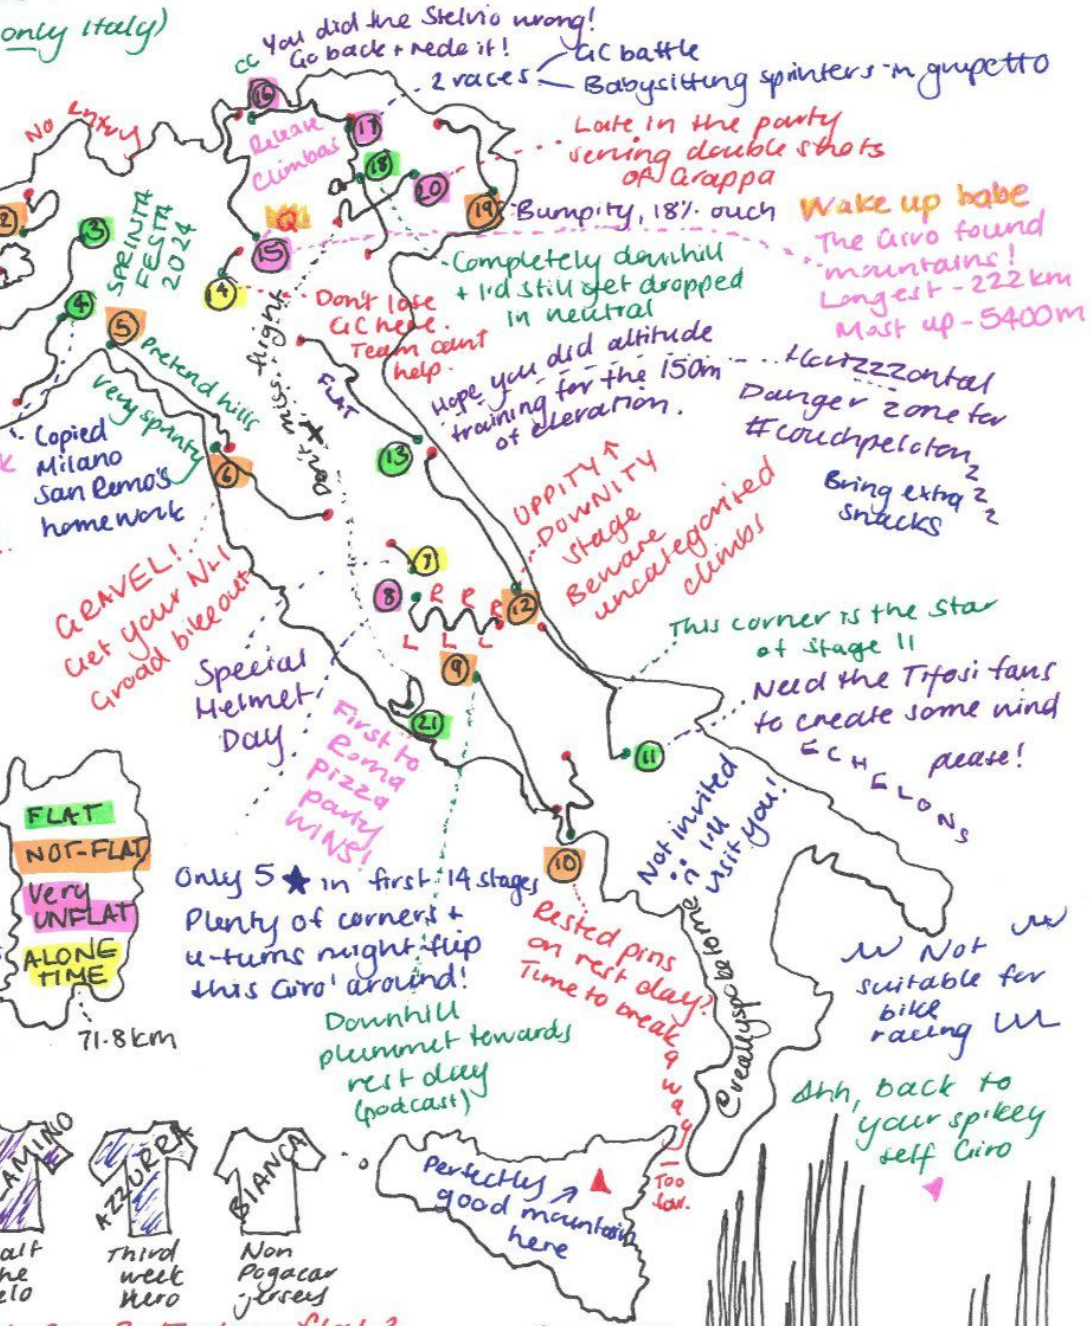 only Italy)
You did the Stelvio wrong!
Go back + redo it!
CC
2 races
GC battle
Babysitting sprinters in grupetto
No Entry
16
Release
Climbas
17
18
20
19
Late in the party
serving double shots
of Grappa
Bumpity, 18% ouch
Wake up babe
The Giro found
mountains!
Longest - 222 km
Most up - 5400m
2
3
SPRINTA
FESTA
2024
Q
15
14
4
5
Completely downhill
+ I'd still get dropped
in neutral
Don't lose
GC here.
Team can't
help.
flight
Don't miss
Pretend hills
Very sprinty
FLAT
Hope you did altitude
training for the 150m
of elevation.
Horizzzontal
Danger zone for
#couchpeloton
z z z
Bring extra
snacks
Copied
Milano
San Remo's
homework
6
13
UPPITY ↑
DOWNITY
stage
Beware
uncategorised
climbs
GRAVEL!
Get your No.1
Groad bike out
7
8
R R R
L L L
12
9
This corner is the star
of Stage 11
Need the Tifosi fans
to create some wind
please!
ECHELONS
Special
Helmet
Day
First to
Roma
pizza
party
WINS!
21
11
Not invited
:( I'll
visit you!
FLAT
NOT-FLAT
Very
UNFLAT
ALONE
TIME
71.8km
Only 5 ★ in first 14 stages
Plenty of corners +
u-turns might flip
this Giro around!
10
Rested pins
on rest day?
Time to break
away!
Too
far.
Downhill
plummet towards
rest day
(podcast)
Not
suitable for
bike
racing
Ahh, back to
your spikey
self Giro
AZZURRA
Third
week
hero
BIANCA
Non
Pogacar
jersey
Perfectly
good mountain
here